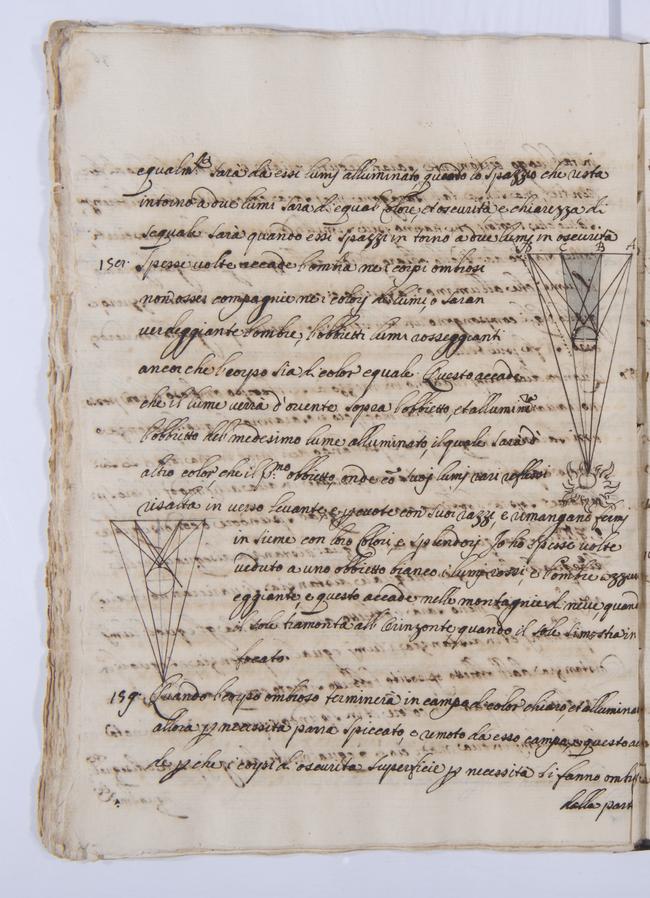 equalm.te sarà da essi lumj alluminato, quando lo spazzio che resta
intorno a due lumi sarà di equal colore, et oscurità e chiarezza di
sequale sarà quando essi spazzi in torno a due lumj in oscurità
D C B A
158. Spesse volte accade l'ombra ne i corpi ombrosi
non esser compagnie ne i colorj de lumi, o saran
verdeggiante l'ombre, l'obbietti lumi rosseggianti
ancor che l'corpo sia di color equale. Questo accade
che il lume verrà d'oriente sopra l'obbietto, et alluminerà
l'obbietto del medesimo lume alluminato, il quale sarà d'
altro color, che il p.mo obbietto, onde cō suoj lumj reflessi
risalta in verso levante, e percote con suoi razzi e rimangano fermj
in sieme con loro Colori, e splendorj. Jo ho spesse volte
veduto a uno obbietto bianco i lumj rossi e l'ombre azzur
eggiante, e questo accade nelle montagnie di neve, quand
il sole tramonta all'Orinzonte, quando il sole si mostra in
focato.
159. Quando l'corpo ombroso terminerà in campo di color chiaro et alluminat
allora p necessità parrà spiccato, e remoto da esso campo, e questo ac
de p che i corpi di oscurità superficie p necessità si fanno ombr
dalla part